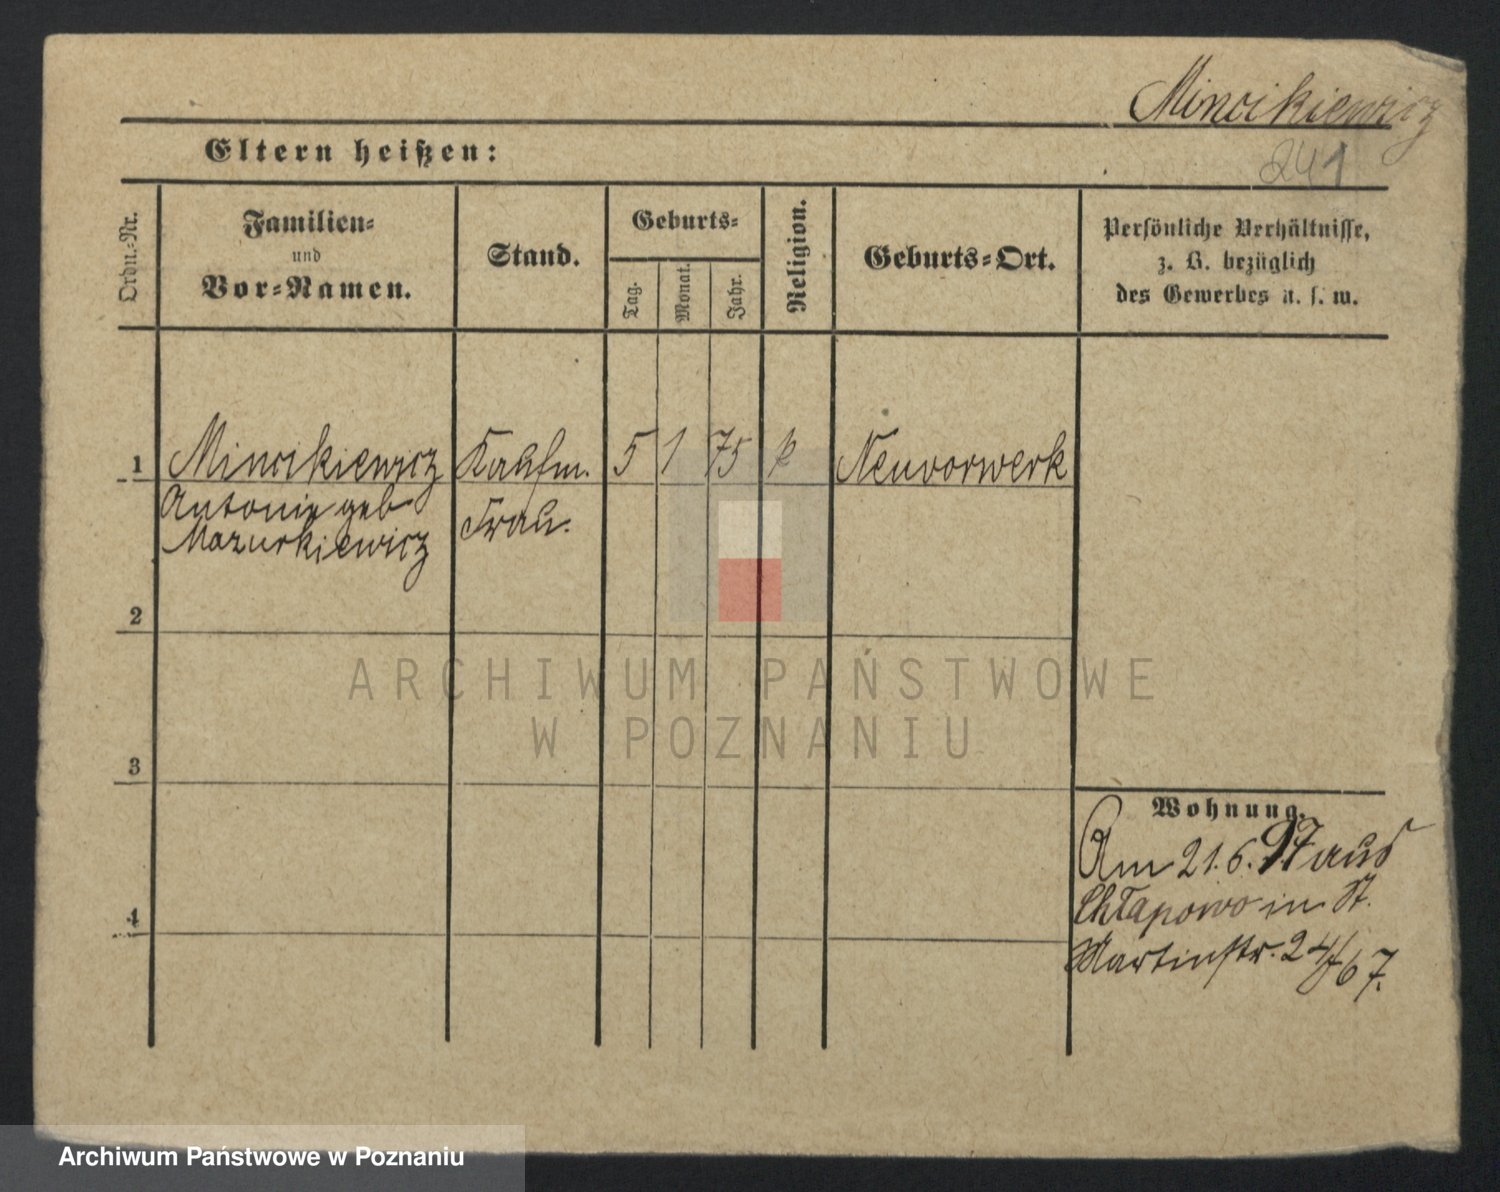 Mincikiewicz
241
Eltern heißen:
Ordn.-Nr.
Familien-
und
Vor-Namen.
Stand.
Geburts-
Tag.
Monat.
Jahr.
Religion.
Geburts-Ort.
Persönliche Verhältnisse,
z. B. bezüglich
des Gewerbes u. s. w.
1 Mincikiewicz Kaufm. 5 1 75 k Neuvorwerk
Antonie geb Frau.
Mazurkiewicz
2
3
4
Wohnung.
Am 21.6.97 aus
Chłapowo in St.
Martinstr. 24/67.
ARCHIWUM PAŃSTWOWE
W POZNANIU
Archiwum Państwowe w Poznaniu